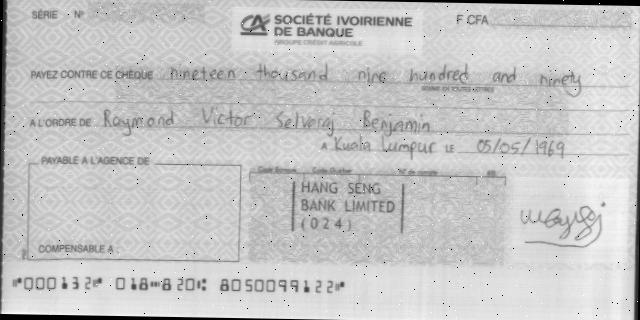 SÉRIE N°
SOCIÉTÉ IVOIRIENNE
DE BANQUE
GROUPE CRÉDIT AGRICOLE
F CFA
PAYEZ CONTRE CE CHÈQUE nineteen thousand nine hundred and ninety
SOMME EN TOUTES LETTRES
A L'ORDRE DE Raymond Victor Selveraj Benjamin
A Kuala Lumpur LE 05/05/1969
PAYABLE A L'AGENCE DE
Code Banque Code Guichet N° de compte RIB
HANG SENG
BANK LIMITED
(024)
COMPENSABLE A :
⑈000132⑈ 018⑉820⑆ 8050099122⑈